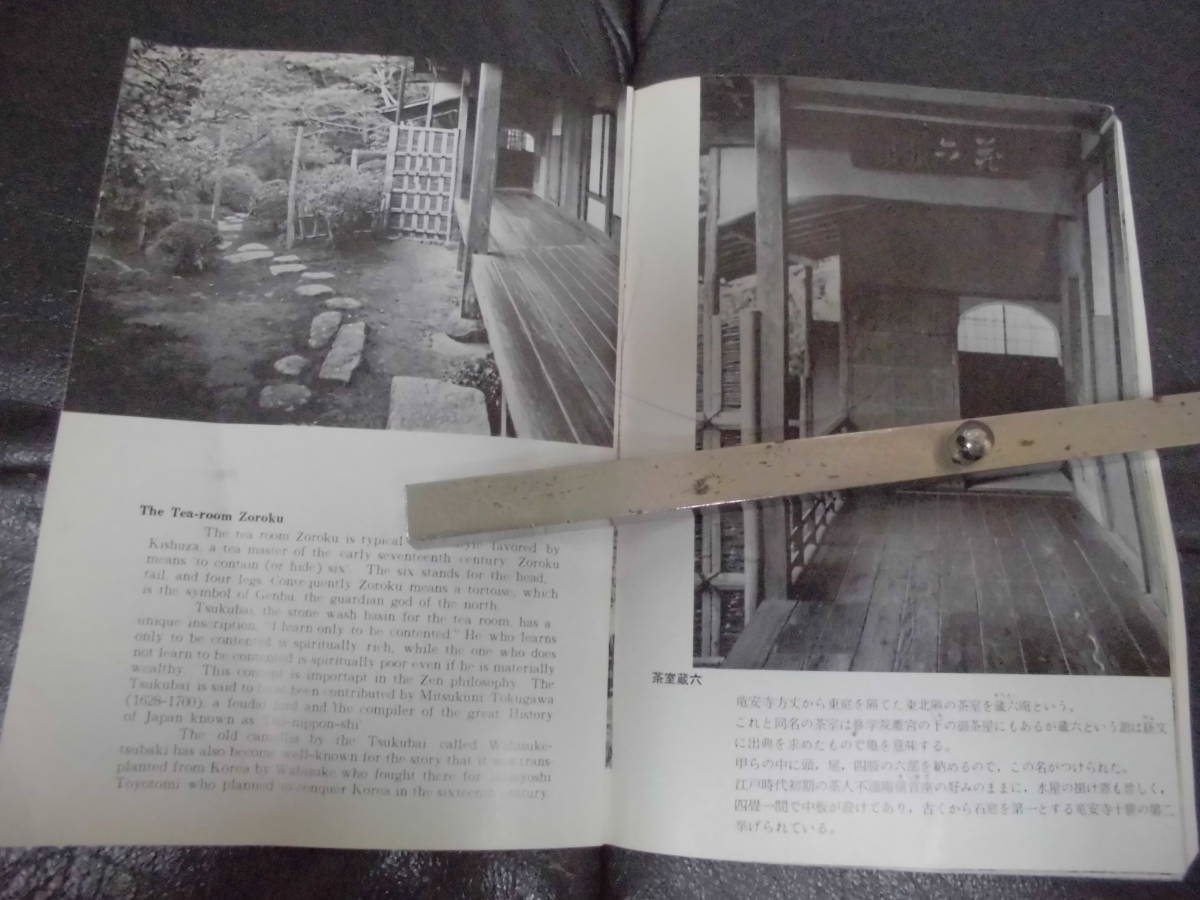 The Tea-room Zoroku
The tea room Zoroku is typical favored by
Kishuza, a tea master of the early seventeenth century. Zoroku
means "to contain (or hide) six". The six stands for the head,
tail, and four legs. Consequently Zoroku means a tortoise, which
is the symbol of Genbu, the guardian god of the north.
Tsukubai, the stone wash basin for the tea room, has a
unique inscription, "I learn only to be contented." He who learns
only to be contented is spiritually rich, while the one who does
not learn to be contented is spiritually poor even if he is materially
wealthy. This concept is important in the Zen philosophy. The
Tsukubai is said to have been contributed by Mitsukuni Tokugawa
(1628-1700), a feudal lord and the compiler of the great History
of Japan known as
The old camellia by the Tsukubai called Wabisuke-
tsubaki has also become well-known for the story that it was trans-
planted from Korea by Wabisuke who fought there for Hideyoshi
Toyotomi who planned to conquer Korea in the sixteenth century.
六
茶室蔵六
竜安寺方丈から東庭を隔てた東北隅の茶室を蔵六庵という。
これと同名の茶室は修学院離宮の下の御茶屋にもあるが蔵六という語は経文
に出典を求めたもので亀を意味する。
甲らの中に頭、尾、四肢の六部を納めるので、この名がつけられた。
江戸時代初期の茶人不遠庵僖首座の好みのままに、水屋の掛け障も珍しく、
四畳一間で中板が設けてあり、古くから石庭を第一とする竜安寺十勝の第二
挙げられている。